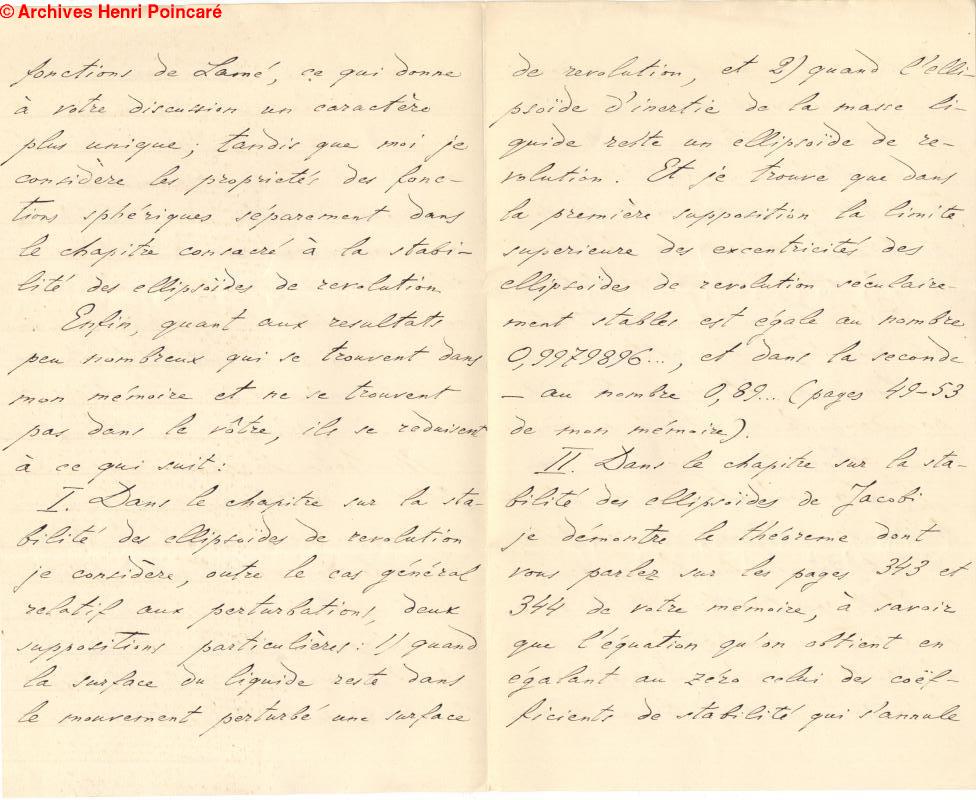 © Archives Henri Poincaré
fonctions de Lamé, ce qui donne
à votre discussion un caractère
plus unique; tandis que moi je
considère les proprietés des fonc-
tions sphériques séparement dans
le chapitre consacré à la stabi-
lité des ellipsoïdes de revolution.
Enfin, quant aux resultats
peu nombreux qui se trouvent dans
mon mémoire et ne se trouvent
pas dans le vôtre, ils se reduisent
à ce qui suit:
I. Dans le chapitre sur la sta-
bilité des ellipsoïdes de revolution
je considère, outre le cas général
relatif aux perturbations, deux
suppositions particulières: 1) quand
la surface du liquide reste dans
le mouvement perturbé une surface
de revolution, et 2) quand l'elli-
psoïde d'inertie de la masse li-
quide reste un ellipsoïde de re-
volution. Et je trouve que dans
la première supposition la limite
superieure des excentricités des
ellipsoïdes de revolution séculaire-
ment stables est égale au nombre
0,9979896..., et dans la seconde
— au nombre 0,89... (pages 49–53
de mon mémoire).
II. Dans le chapitre sur la sta-
bilité des ellipsoïdes de Jacobi
je démontre le théoreme dont
vous parlez sur les pages 343 et
344 de votre mémoire, à savoir
que l'équation qu'on obtient en
égalant au zéro celui des coëf-
ficients de stabilité qui s'annule